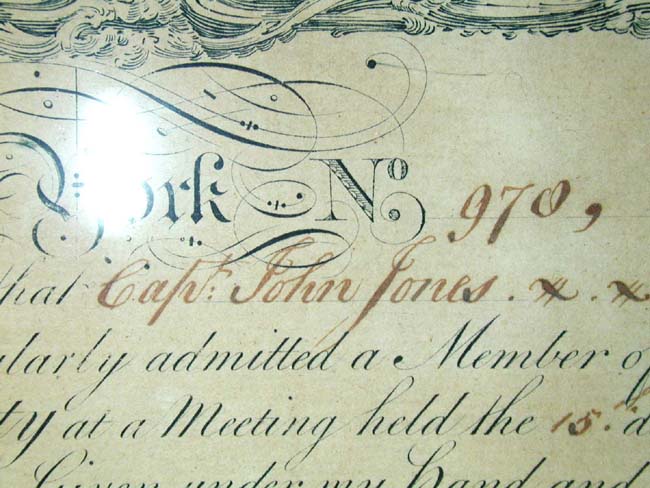 York Nº. 978,
that Capt. John Jones. x. x
ularly admitted a Member of
ty at a Meeting held the 15th d
Given under my Hand and